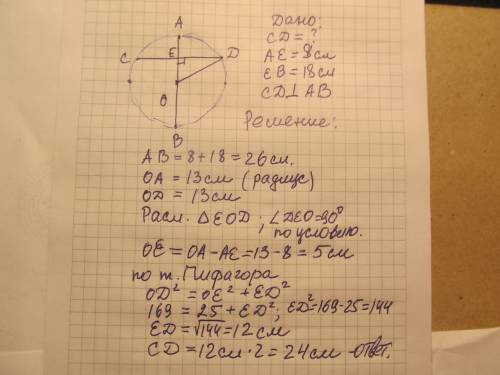 A
C
E
D
O
B
Дано:
CD = ?
AE = 8 см
EB = 18 см
CD ⊥ AB
Решение:
AB = 8 + 18 = 26 см.
OA = 13 см (радиус)
OD = 13 см
Расм. △EOD; ∠DEO=90°
по условию.
OE = OA - AE = 13 - 8 = 5 см
по т. Пифагора
OD² = OE² + ED²
169 = 25 + ED²; ED²=169-25=144
ED = √144 = 12 см
CD = 12 см · 2 = 24 см - ответ.